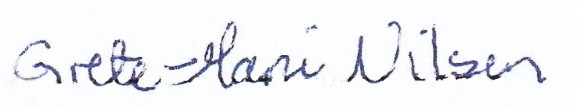 Grete-Mari Nilsen